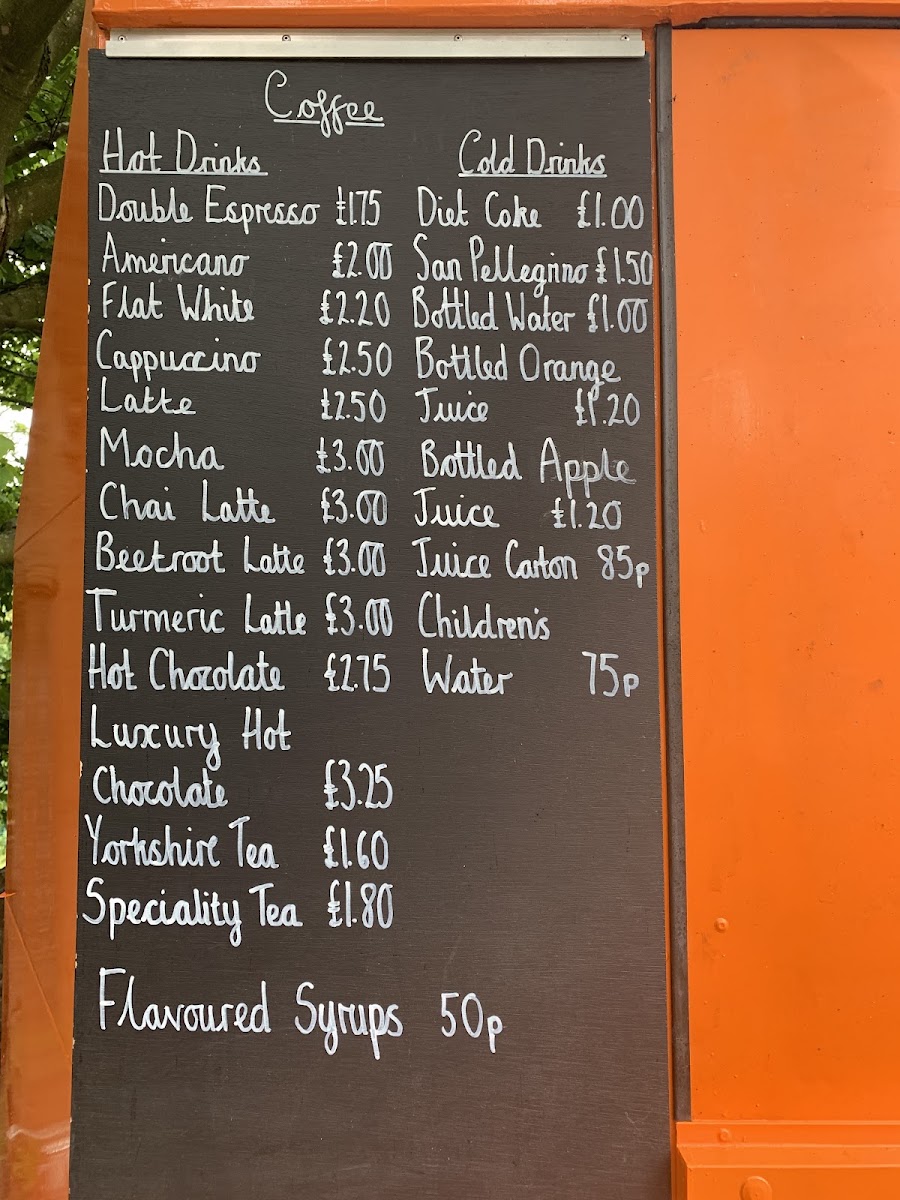 Coffee
Hot Drinks
Double Espresso £1.75
Americano £2.00
Flat White £2.20
Cappuccino £2.50
Latte £2.50
Mocha £3.00
Chai Latte £3.00
Beetroot Latte £3.00
Turmeric Latte £3.00
Hot Chocolate £2.75
Luxury Hot
Chocolate £3.25
Yorkshire Tea £1.60
Speciality Tea £1.80
Cold Drinks
Diet Coke £1.00
San Pellegrino £1.50
Bottled Water £1.00
Bottled Orange
Juice £1.20
Bottled Apple
Juice £1.20
Juice Carton 85p
Children's
Water 75p
Flavoured Syrups 50p